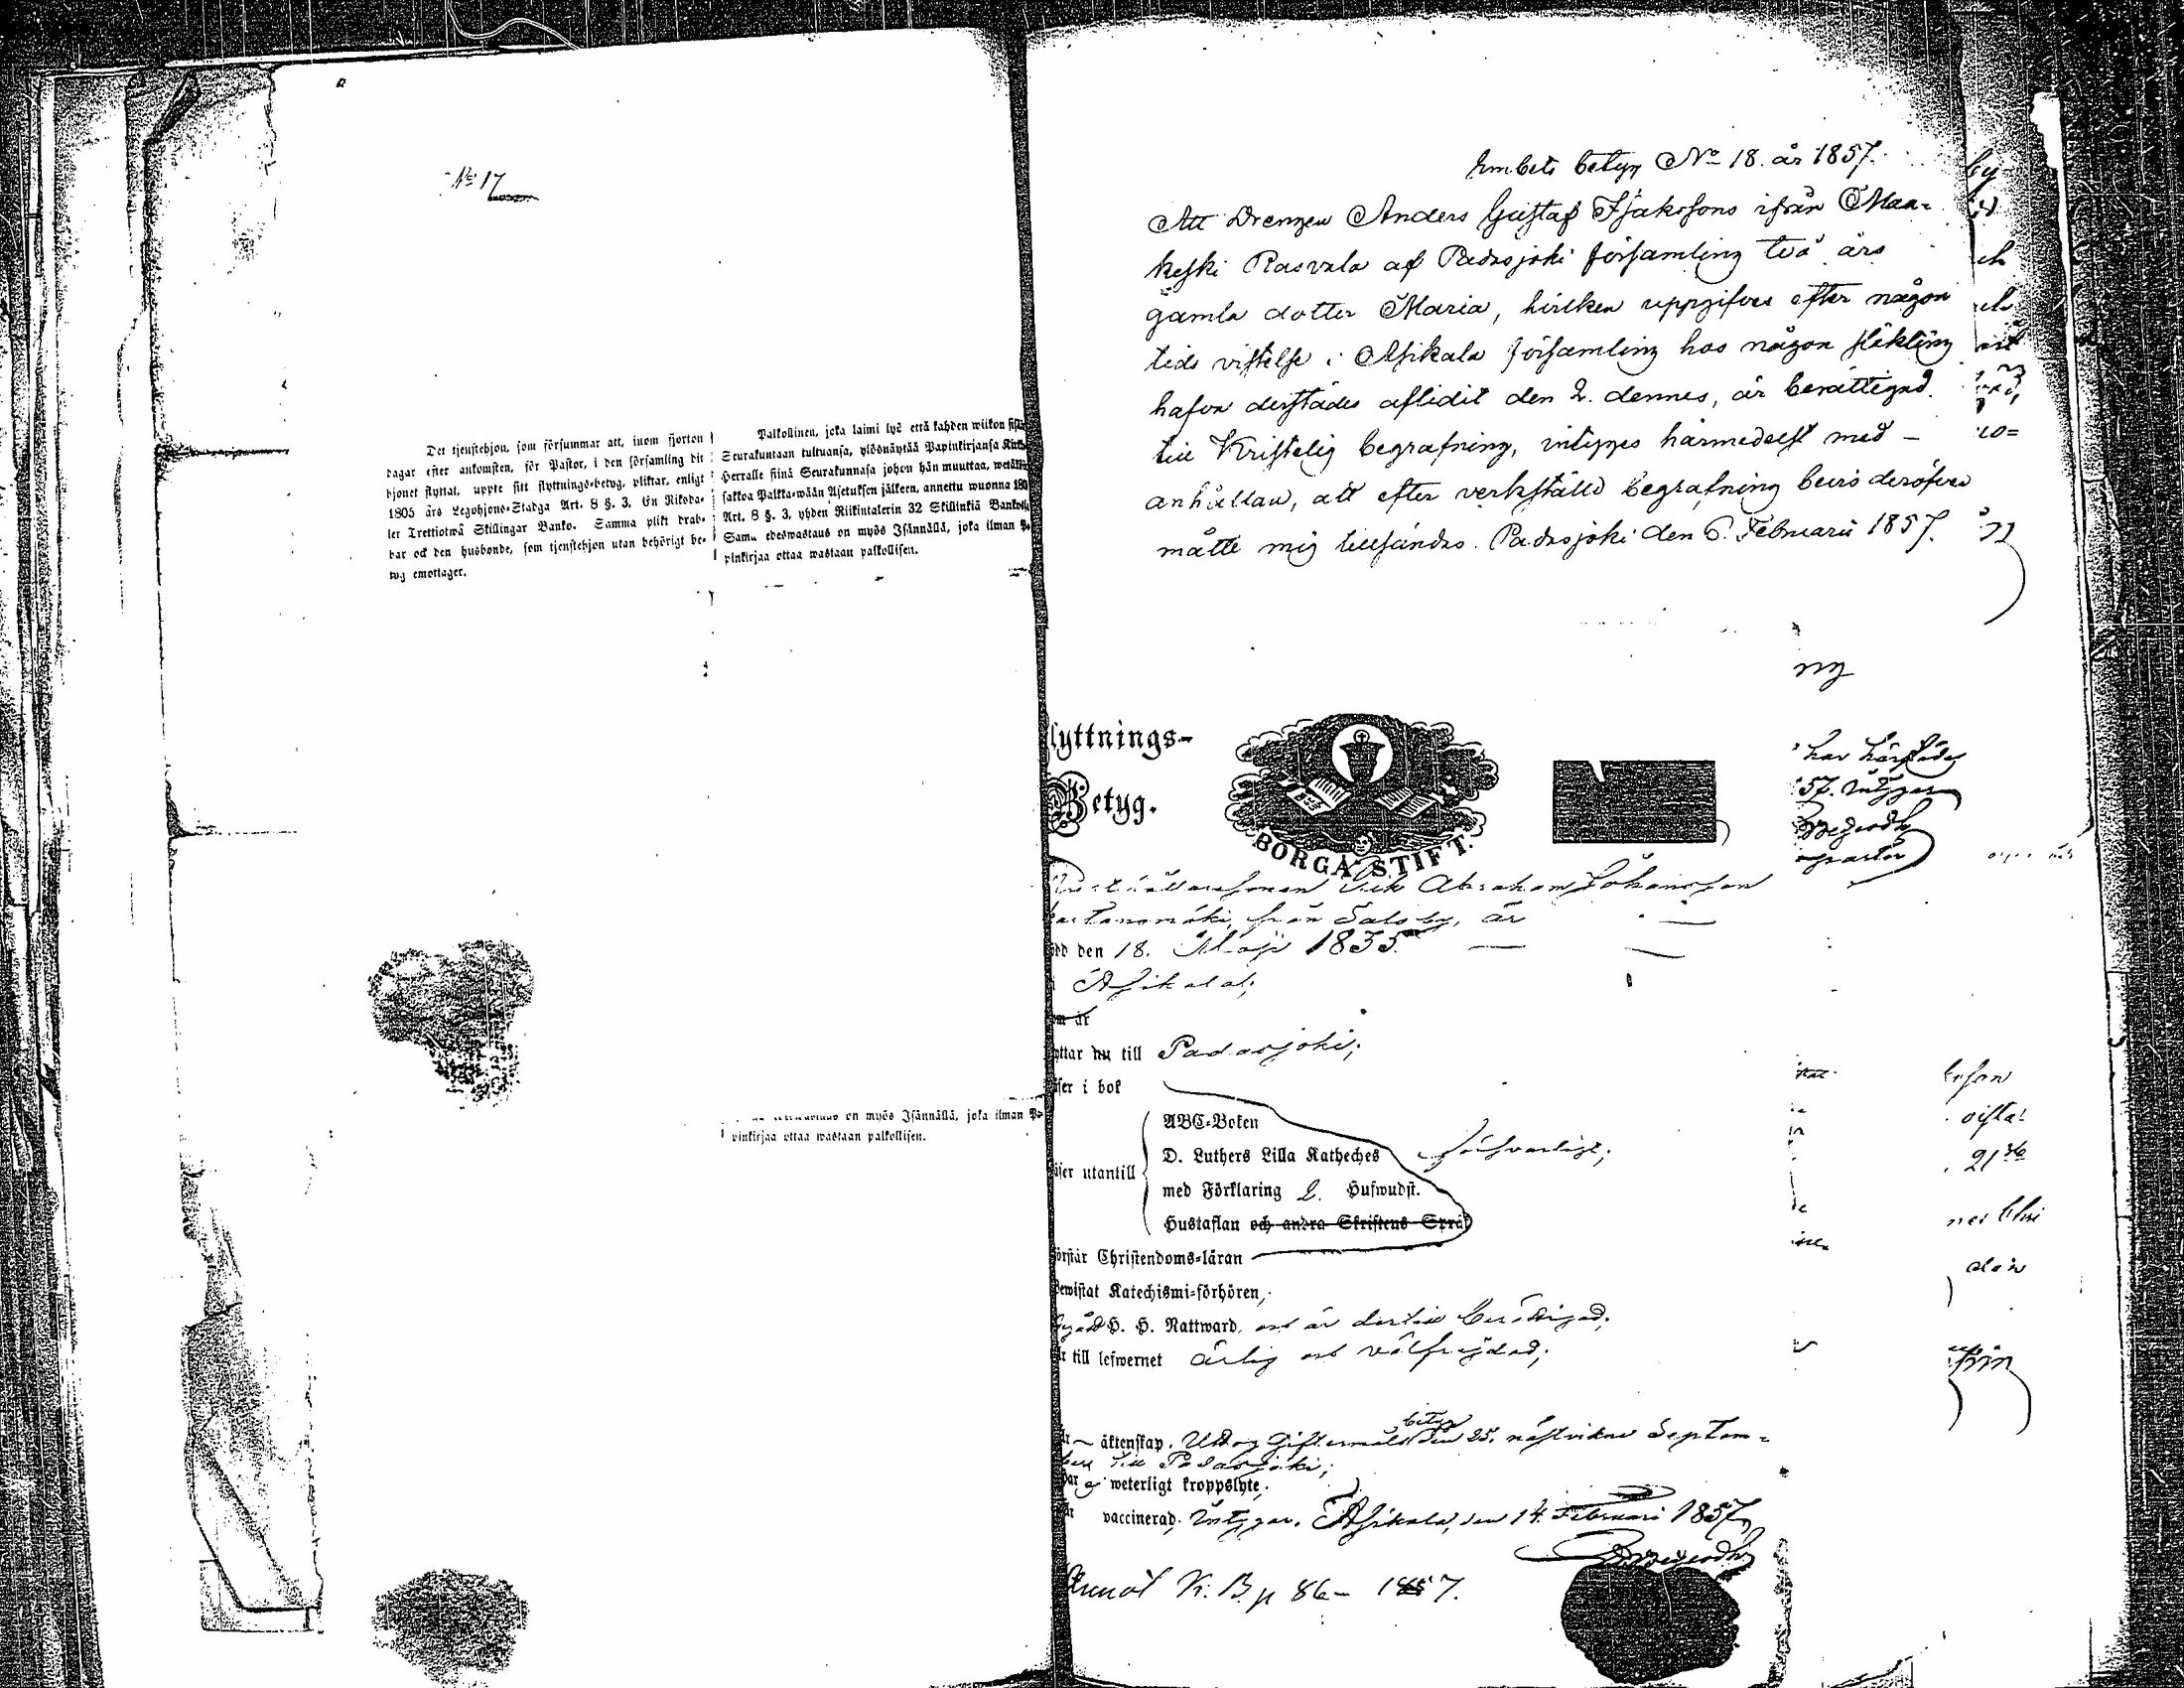 No 17
Det tjenstehjon, som försummar att, inom fjorton
dagar efter ankomsten, för Pastor, i den församling dit
hjonet flyttat, uppte sitt flyttnings-betyg, pliktar, enligt
1805 års Legohjons-Stadga Art. 8 §. 3. En Riksda-
ler Trettiotwå Skillingar Banko. Samma plikt drab-
bar ock den husbonde, som tjenstehjon utan behörigt be-
tyg emottager.
Palkollinen, joka laimi lyö että kahden wiikon
Seurakuntaan tultuansa, ylösnäyttää Papinkirjansa
Herralle siinä Seurakunnasa johon hän muuttaa,
sakkoa Palkka-wään Asetuksen jälkeen, annettu wuonna
Art. 8 §. 3, yhden Riikintalerin 32 Skillinkiä
edeswastaus on myös Isännällä, joka ilman Pa-
pinkirjaa ottaa wastaan palkollisen.
on myös Isännällä, joka ilman Pa-
pinkirjaa ottaa wastaan palkollisen.
Embets betyg No 18. år 1857.
Att Drengen Anders Gustaf Isakssons ifrån Maa-
keski Rasvala af Padasjoki församling två års
gamla dotter Maria, hvilken uppgifves efter någon
tids vistelse i Asikala församling hos någon släkting
hafva derstädes aflidit den 2. dennes, är berättigad
till Kristelig begrafning, intygas härmedelst med –
anhållan, att efter verkställd begrafning bevis deröfver
måtte mig tillsändas. Padasjoki den 6. Februarii 1857.
ng
har härstädes
57. intygar
lyttnings-
Betyg.
BORGÅ STIFT.
Erik Abraham Johansson
från Salo by, är
ödd den 18. Maji 1835.
i Asikala;
om är
yttar nu till Padasjoki;
äser i bok
ABC-Boken
D. Luthers Lilla Katheches försvarligt;
äser utantill
med Förklaring 2. Hufwudst.
Hustaflan och andra Skriftens Språk
örstår Christendoms-läran
bewistat Katechismi-förhören,
H. H. Nattward, och är dertill berättigad;
är till lefwernet ärlig och välfrejdad;
betyg
är äktenskap. Uttog Giftermåls den 25. nästvikne Septem-
ber till Padasjoki;
har ej weterligt kroppslyte;
är vaccinerad; Intygar. Asikala, den 14. Februari 1857
Annot K. B. p 86 – 1857.